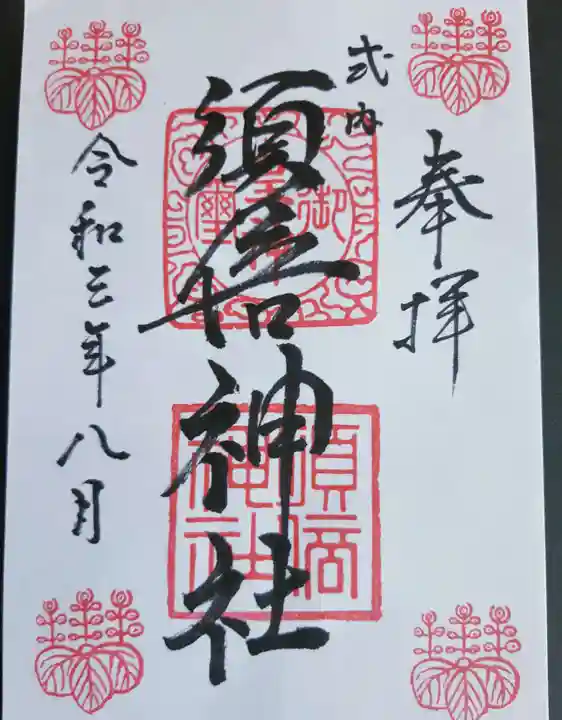 奉拝
式内
須倍神社
令和三年八月
須倍
神社